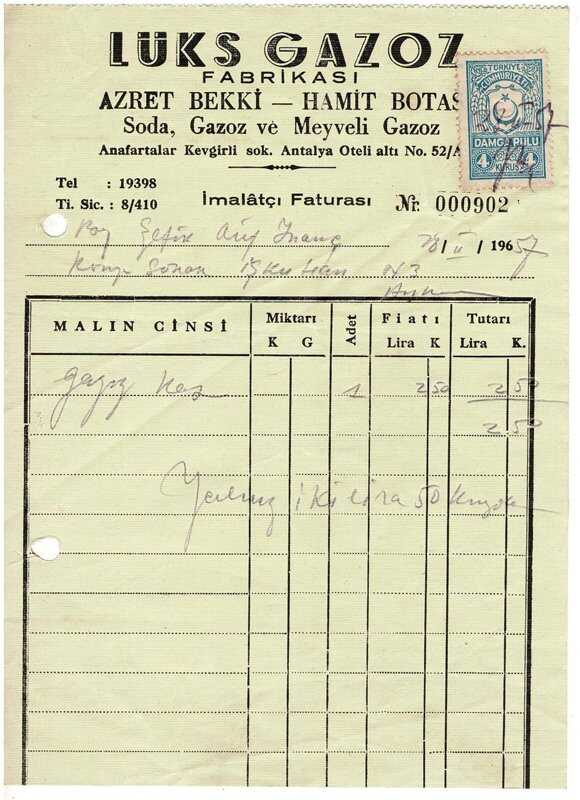 LÜKS GAZOZ
FABRİKASI
AZRET BEKKİ — HAMİT BOTAS
Soda, Gazoz ve Meyveli Gazoz
Anafartalar Kevgirli sok. Antalya Oteli altı No. 52/A
TÜRKİYE
CUMHURİYETİ
DAMGA PULU
4 4
KURUŞ
Tel : 19398
Ti. Sic. : 8/410
İmalâtçı Faturası
Nr. 000902
Bay 28/II/1957
MALIN CİNSİ
Miktarı
K G
Adet
Fiatı
Lira K
Tutarı
Lira K.
gazoz 1 2 50 2 50
2 50
Yalnız iki lira 50 kuruştur